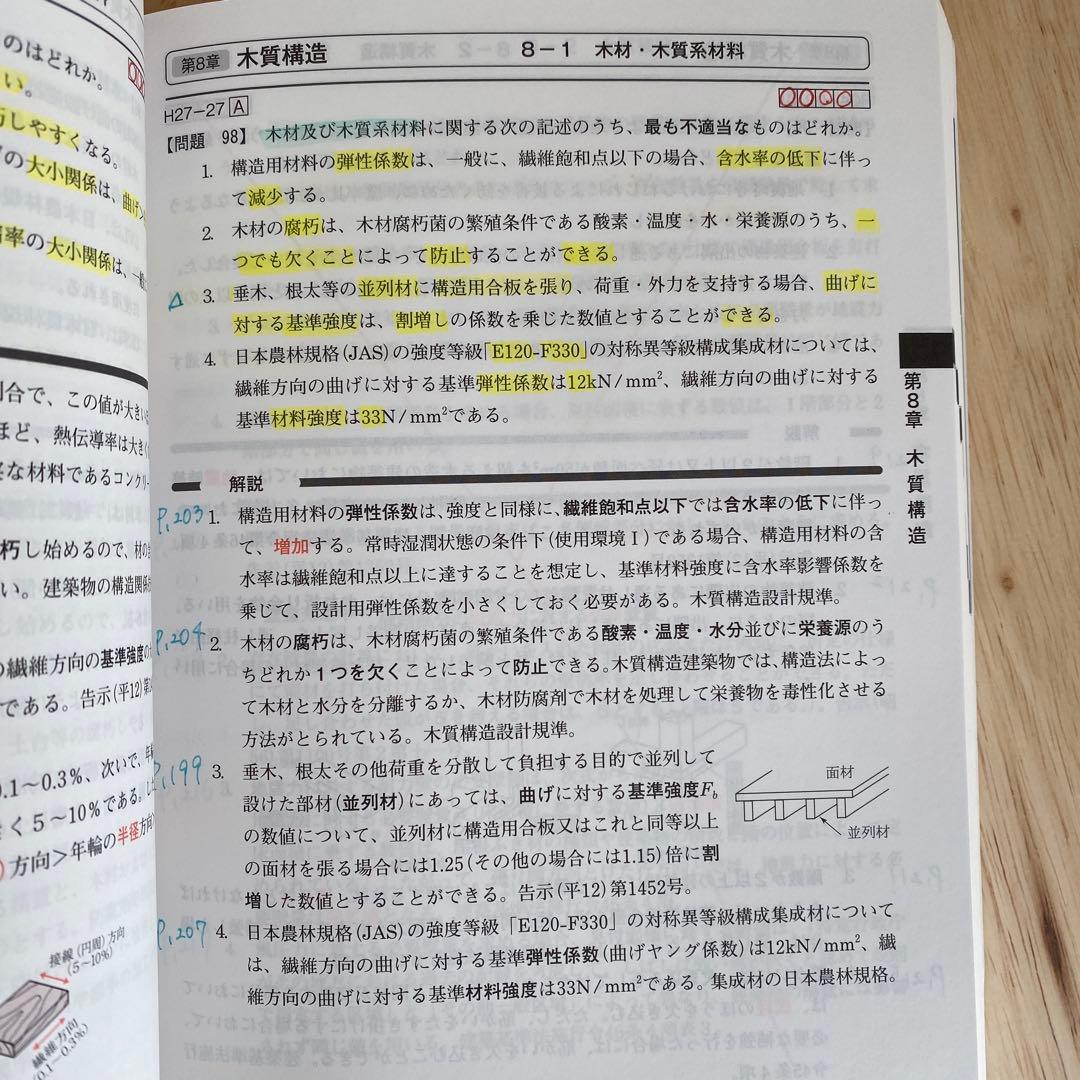 第8章 木質構造 8-1 木材・木質系材料
H27-27 A
【問題 98】 木材及び木質系材料に関する次の記述のうち、最も不適当なものはどれか。
1. 構造用材料の弾性係数は、一般に、繊維飽和点以下の場合、含水率の低下に伴っ
て減少する。
2. 木材の腐朽は、木材腐朽菌の繁殖条件である酸素・温度・水・栄養源のうち、一
つでも欠くことによって防止することができる。
3. 垂木、根太等の並列材に構造用合板を張り、荷重・外力を支持する場合、曲げに
対する基準強度は、割増しの係数を乗じた数値とすることができる。
4. 日本農林規格(JAS)の強度等級「E120-F330」の対称異等級構成集成材については、
繊維方向の曲げに対する基準弾性係数は12kN/mm²、繊維方向の曲げに対する
基準材料強度は33N/mm²である。
解説
P.203 1. 構造用材料の弾性係数は、強度と同様に、繊維飽和点以下では含水率の低下に伴っ
て、増加する。常時湿潤状態の条件下(使用環境Ⅰ)である場合、構造用材料の含
水率は繊維飽和点以上に達することを想定し、基準材料強度に含水率影響係数を
乗じて、設計用弾性係数を小さくしておく必要がある。木質構造設計規準。
P.204 2. 木材の腐朽は、木材腐朽菌の繁殖条件である酸素・温度・水分並びに栄養源のう
ちどれか1つを欠くことによって防止できる。木質構造建築物では、構造法によっ
て木材と水分を分離するか、木材防腐剤で木材を処理して栄養物を毒性化させる
方法がとられている。木質構造設計規準。
P.199 3. 垂木、根太その他荷重を分散して負担する目的で並列して
設けた部材(並列材)にあっては、曲げに対する基準強度Fb
の数値について、並列材に構造用合板又はこれと同等以上
の面材を張る場合には1.25(その他の場合には1.15)倍に割
増した数値とすることができる。告示(平12)第1452号。
面材
並列材
P.207 4. 日本農林規格(JAS)の強度等級「E120-F330」の対称異等級構成集成材について
は、繊維方向の曲げに対する基準弾性係数(曲げヤング係数)は12kN/mm²、繊
維方向の曲げに対する基準材料強度は33N/mm²である。集成材の日本農林規格。
第8章 木質構造
のはどれか。
い。
しやすくなる。
の大小関係は、曲げ
率の大小関係は、一般
割合で、この値が大きい
ほど、熱伝導率は大きく
な材料であるコンクリー
朽し始めるので、材の
い。建築物の構造関係
の繊維方向の基準強度の
である。告示(平12)第
0.1〜0.3%、次いで、年
きく5〜10%である。
方向>年輪の半径方向
接線(円周)方向
(5〜10%)
繊維方向
(0.1〜0.3%)